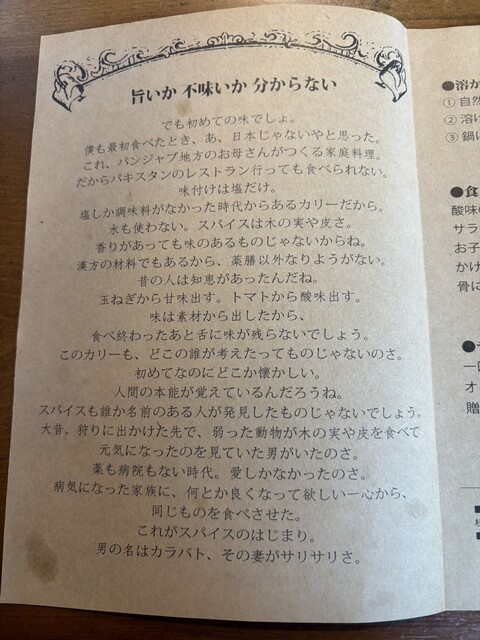 旨いか 不味いか 分からない
でも初めての味でしょ。
僕も最初食べたとき、あ、日本じゃないやと思った。
これ、パンジャブ地方のお母さんがつくる家庭料理。
だからパキスタンのレストラン行っても食べられない。
味付けは塩だけ。
塩しか調味料がなかった時代からあるカリーだから。
水も使わない。スパイスは木の実や皮さ。
香りがあっても味のあるものじゃないからね。
漢方の材料でもあるから、薬膳以外なりようがない。
昔の人は知恵があったんだね。
玉ねぎから甘味出す。トマトから酸味出す。
味は素材から出したから、
食べ終わったあと舌に味が残らないでしょう。
このカリーも、どこの誰が考えたってものじゃないのさ。
初めてなのにどこか懐かしい。
人間の本能が覚えているんだろうね。
スパイスも誰か名前のある人が発見したものじゃないでしょう。
大昔、狩りに出かけた先で、弱った動物が木の実や皮を食べて
元気になったのを見ていた男がいたのさ。
薬も病院もない時代。愛しかなかったのさ。
病気になった家族に、何とか良くなって欲しい一心から、
同じものを食べさせた。
これがスパイスのはじまり。
男の名はカラバト、その妻がサリサリさ。
●溶か
① 自然
② 溶け
③ 鍋に
●食
酸味の
サラ
お子
かけ
骨に
一口
オ
贈